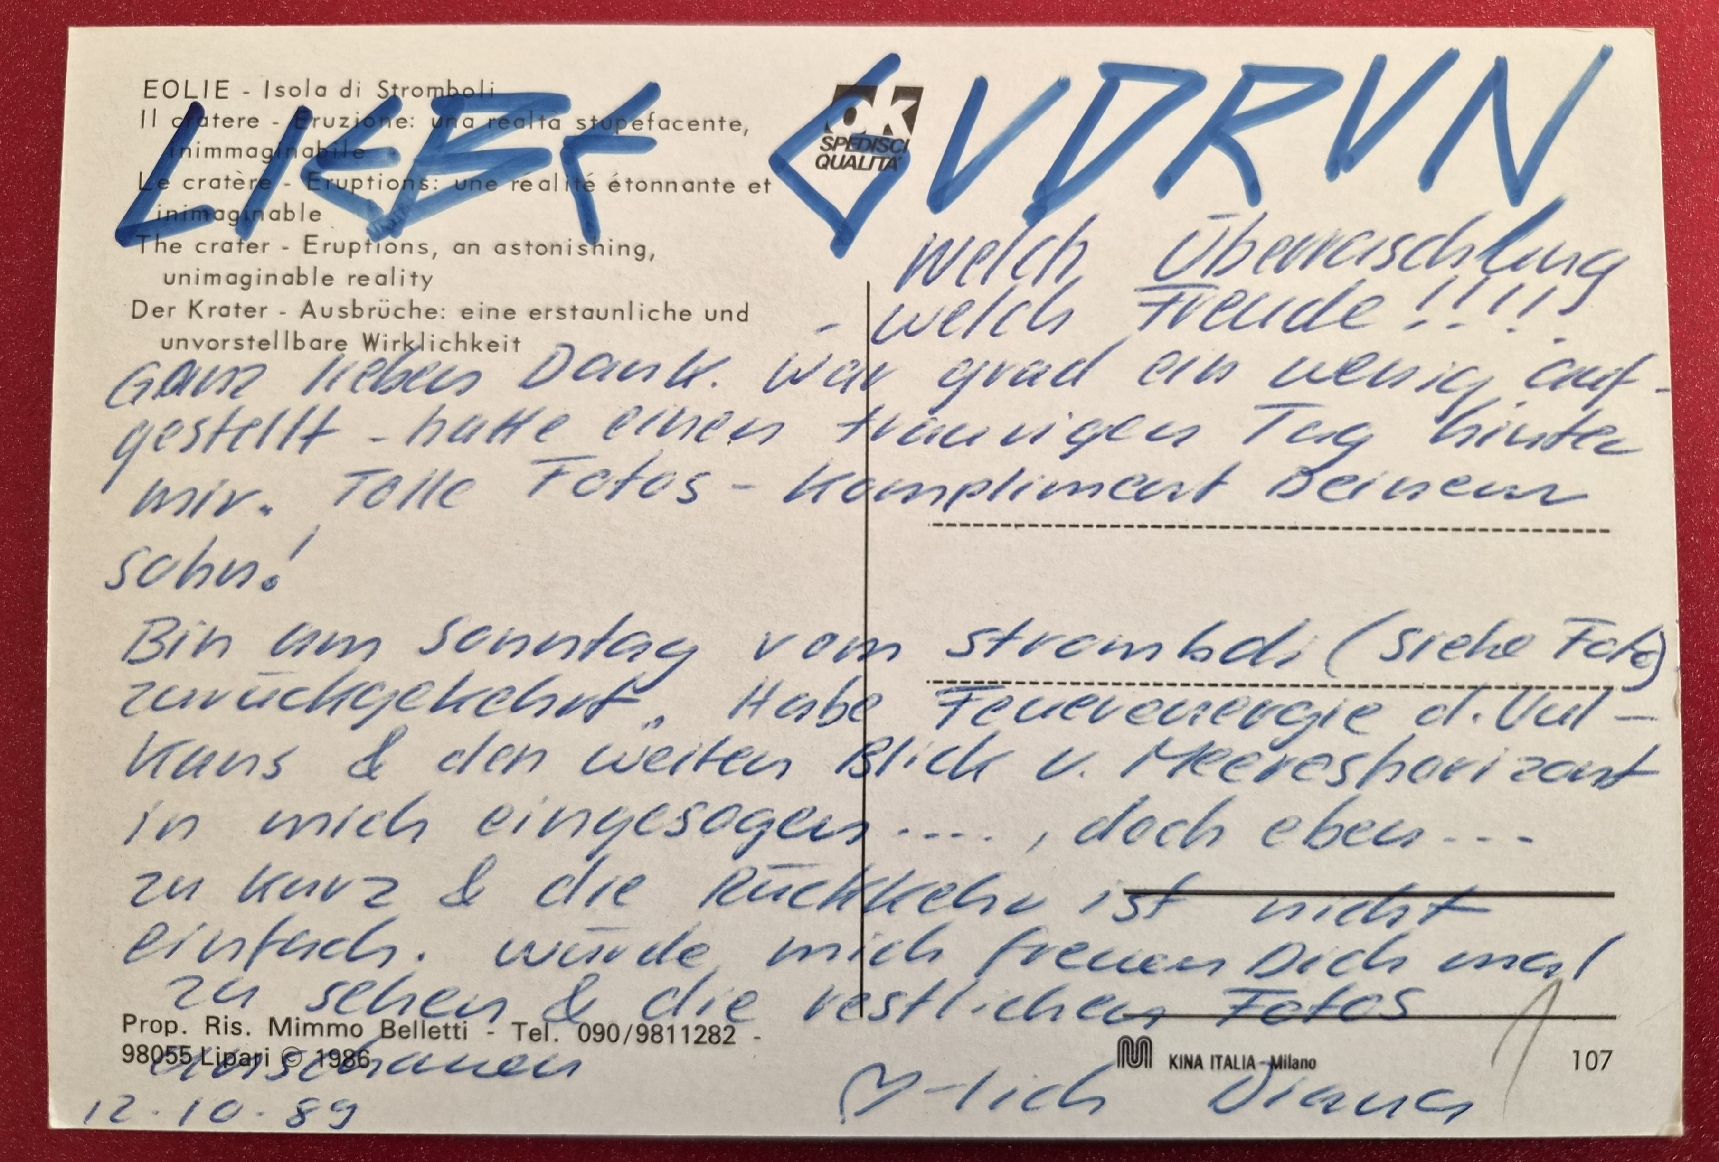 EOLIE - Isola di Stromboli
Il cratere - Eruzione: una realtà stupefacente,
inimmaginabile
Le cratère - Eruptions: une réalité étonnante et
inimaginable
The crater - Eruptions, an astonishing,
unimaginable reality
Der Krater - Ausbrüche: eine erstaunliche und
unvorstellbare Wirklichkeit
OK
SPEDISCI
QUALITÀ
LIEBE GUDRUN
Welch Überraschung
- welch Freude!!!!
Ganz lieben Dank. War grad ein wenig auf-
gestellt - hatte einen traurigen Tag hinter
mir. Tolle Fotos - Kompliment Deinem
Sohn!
Bin am Sonntag vom Stromboli (siehe Foto)
zurückgekehrt. Habe Feuerenergie d. Vul-
kans & den weiten Blick v. Meereshorizont
in mich eingesogen...., doch eben...
zu kurz & die Rückkehr ist nicht
einfach. Würde mich freuen Dich mal
zu sehen & die restlichen Fotos
anschauen
♡-lich Diana
12.10.89
Prop. Ris. Mimmo Belletti - Tel. 090/9811282 -
98055 Lipari © 1986
KINA ITALIA - Milano
107